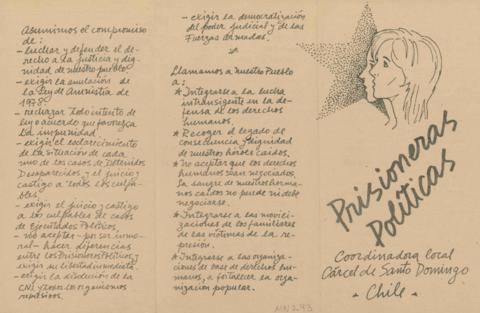 Asumimos el compromiso
de :
- luchar y defender el de-
recho a la justicia y dig-
nidad de nuestro pueblo.
- exigir la anulación de
la Ley de Amnistía de
1978.
- rechazar todo intento de
ley o acuerdo que favorezca
la impunidad.
- exigir el esclarecimiento
de la situación de cada
uno de los casos de Detenidos
Desaparecidos, y el juicio y
castigo a todos los culpa-
bles.
- exigir el juicio y castigo
a los culpables de casos
de Ejecutados Políticos.
- no aceptar - por ser inmo-
ral - hacer diferencias
entre los Prisioneros Políticos, y
exigir su libertad inmediata.
- exigir la disolución de la
CNI y todos los organismos
represivos.
- exigir la democratización
del poder judicial y de las
Fuerzas Armadas.
Llamamos a Nuestro Pueblo
a:
★ Integrarse a la lucha
intransigente en la de-
fensa de los derechos
humanos.
★ Recoger el legado de
consecuencia y dignidad
de nuestros héroes caídos.
★ No aceptar que los derechos
humanos sean negociados.
La sangre de nuestros herma-
nos caídos no puede ni debe
negociarse.
★ Integrarse a las movili-
zaciones de los familiares
de las víctimas de la re-
presión.
★ Integrarse a las organiza-
ciones de base de derechos hu-
manos, a fortalecer la or-
ganización popular.
MN243
Prisioneras
Políticas
Coordinadora local
Cárcel de Santo Domingo
- Chile -